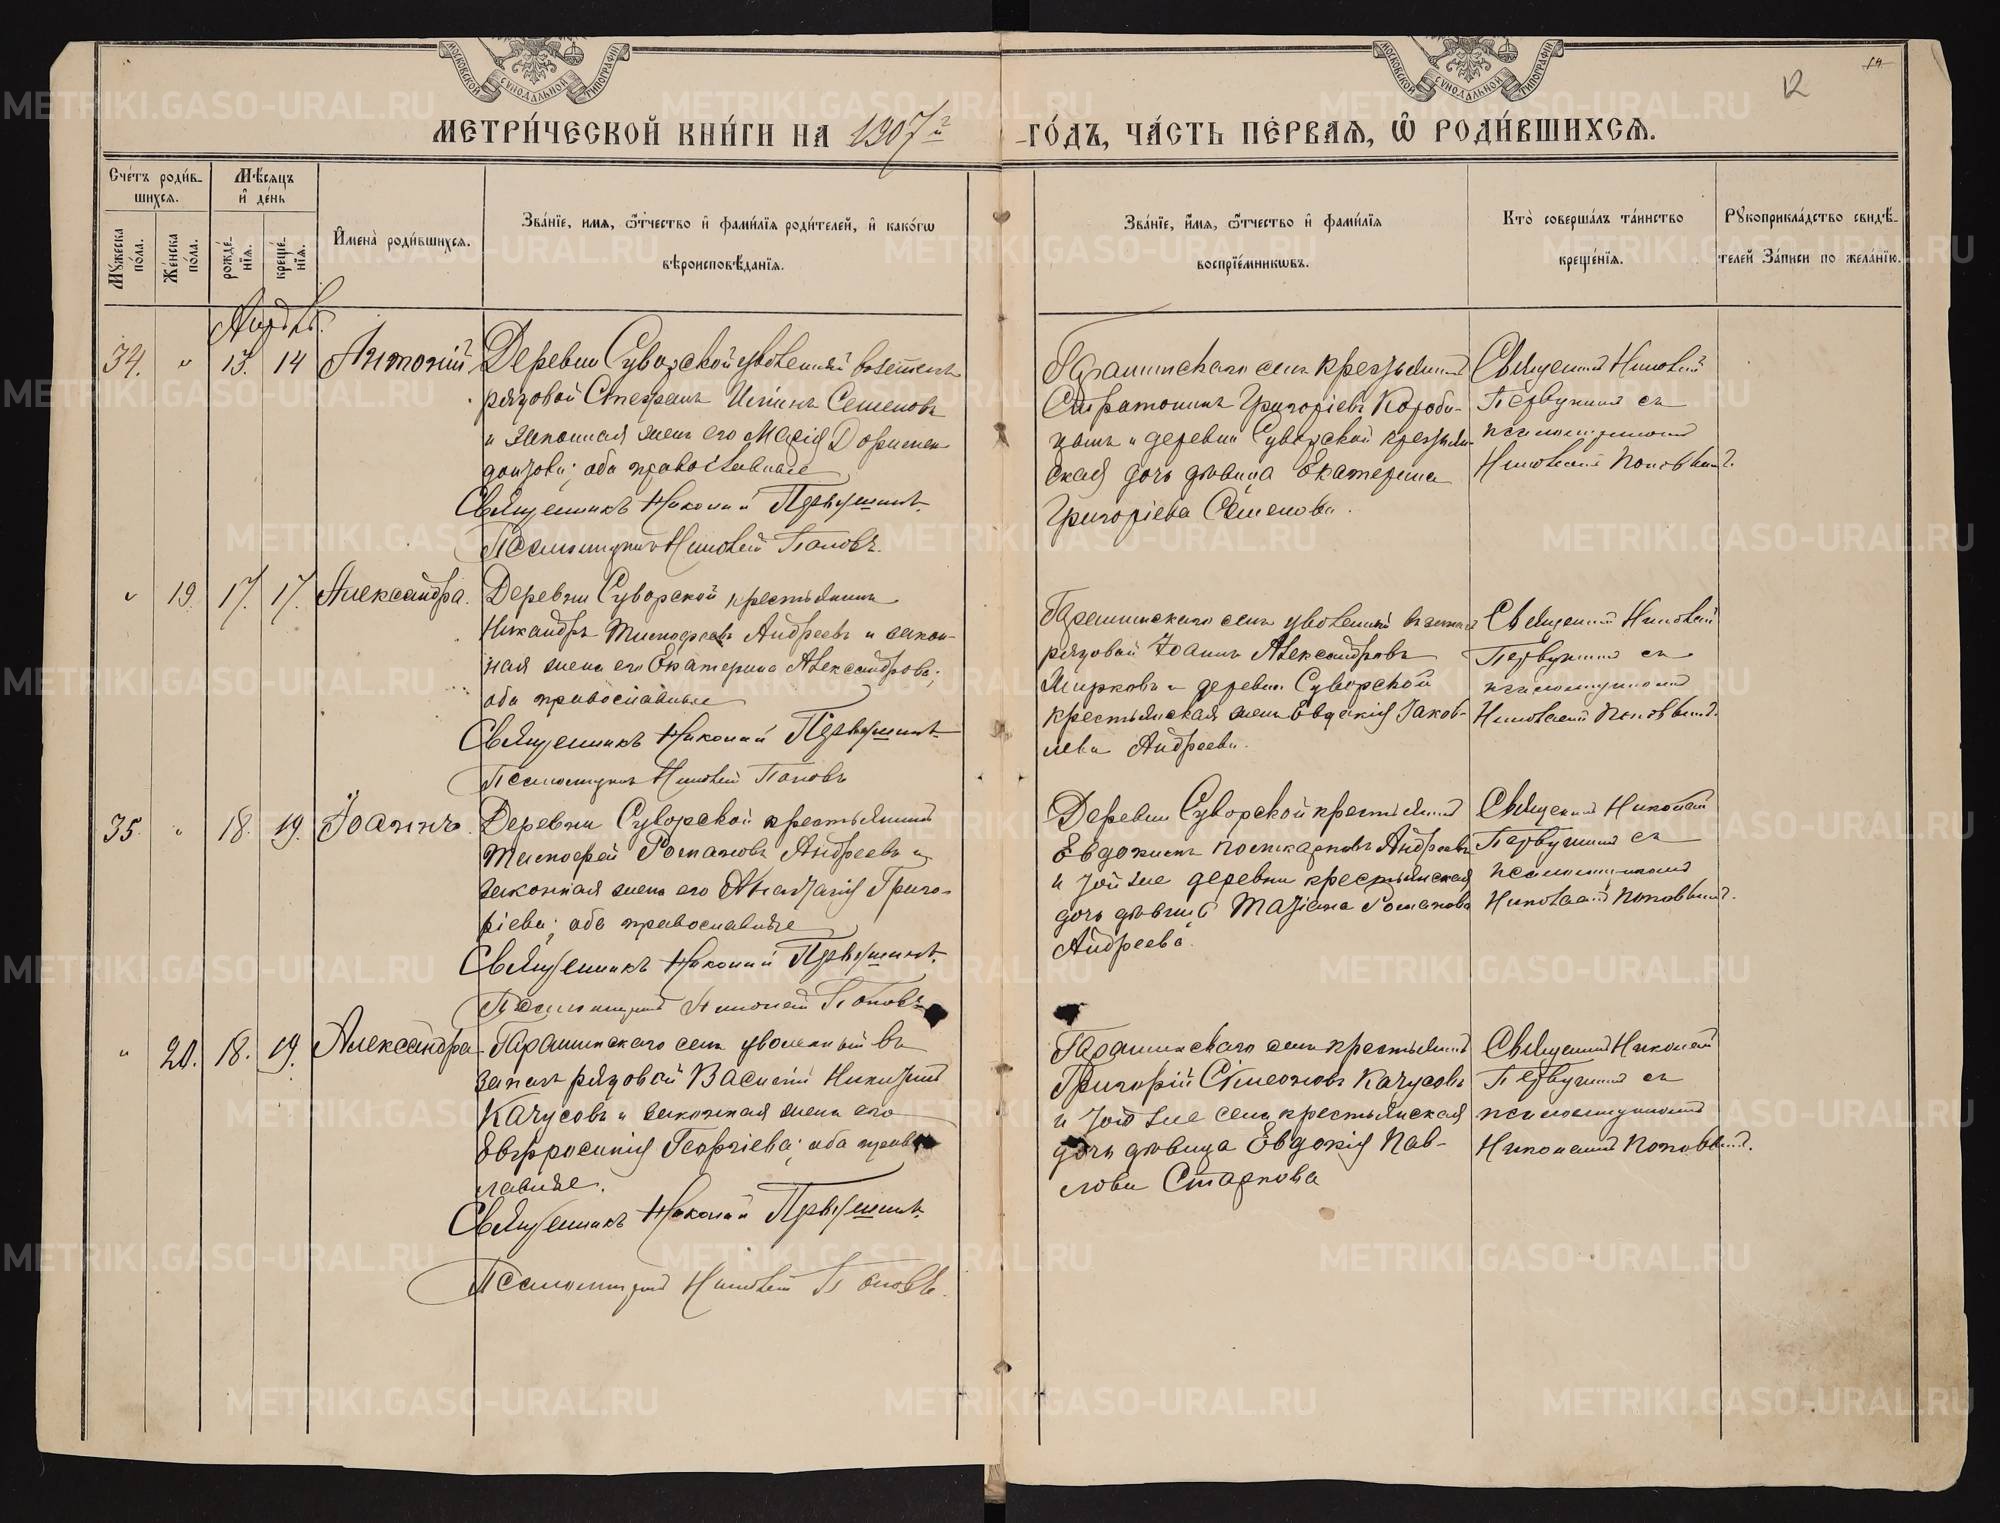 МОСКОВСКОЙ СУНОДАЛЬНОЙ ТИПОГРАФІИ
МОСКОВСКОЙ СУНОДАЛЬНОЙ ТИПОГРАФІИ
12
МЕТРИ́ЧЕСКОЙ КНИ́ГИ НА 1907й -ГО́ДЪ, ЧА́СТЬ ПЕ́РВАЯ, Ѿ РОДИ́ВШИХСЯ.
Сче́тъ роди́в-
шихся.
Мѣсяцъ
и де́нь
Мужеска по́ла.
Же́нска по́ла.
рожде́нїя.
креще́нїя.
Имена̀ роди́вшихся.
Зва́нїе, имя, ѻтчество и фами́лїя роди́телей, и како́гѡ
вѣроисповѣ́данїя.
Зва́нїе, имя, ѻтчество и фами́лїя
воспрїе́мникѡвъ.
Кто̀ соверша́лъ та́инство
креще́нїя.
Рукоприкла́дство свидѣ́-
телей за́писи по жела́нїю.
Апрѣль.
34. „ 13. 14 Антоній
Деревни Суворской уволенный въ запасъ
рядовой Стефанъ Семеновъ
и законная жена его Марія
оба православные
Священникъ Николай Первушинъ.
Псаломщикъ Николай Поповъ.
крестьянинъ
Григоріевъ
и деревни Суворской крестьян-
ская дочь дѣвица Екатерина
Григоріева Семенова.
Священникъ Николай
Первушинъ съ
псаломщикомъ
Николаемъ Поповымъ.
„ 19. 17. 17. Александра.
Деревни Суворской крестьянинъ
Никандръ Тимофеевъ Андреевъ и закон-
ная жена его Екатерина Александрова;
оба православные
Священникъ Николай Первушинъ
Псаломщикъ Николай Поповъ
села уволенный въ запасъ
рядовой Іоаннъ Александровъ
и деревни Суворской
крестьянская жена Евдокія Іаков-
лева Андреева.
Священникъ Николай
Первушинъ съ
псаломщикомъ
Николаемъ Поповымъ.
35. „ 18. 19. Іоаннъ.
Деревни Суворской крестьянинъ
Тимофей Романовъ Андреевъ и
законная жена его Анастасія Григо-
ріева; оба православные
Священникъ Николай Первушинъ.
Псаломщикъ Николай Поповъ
Деревни Суворской крестьянинъ
Евдокимъ Андреевъ
и той же деревни крестьянская
дочь дѣвица Татіана Романова
Андреева.
Священникъ Николай
Первушинъ съ
псаломщикомъ
Николаемъ Поповымъ.
„ 20. 18. 19. Александра
села уволенный въ
запасъ рядовой Василій Никитинъ
Качусовъ и законная жена его
Евфросинія Георгіева; оба право-
лавные.
Священникъ Николай Первушинъ.
Псаломщикъ Николай Поповъ.
села крестьянинъ
Григорій Симеоновъ Качусовъ
и той же села крестьянская
дочь дѣвица Евдокія Пав-
лова Старкова
Священникъ Николай
Первушинъ съ
псаломщикомъ
Николаемъ Поповымъ.
METRIKI.GASO-URAL.RU